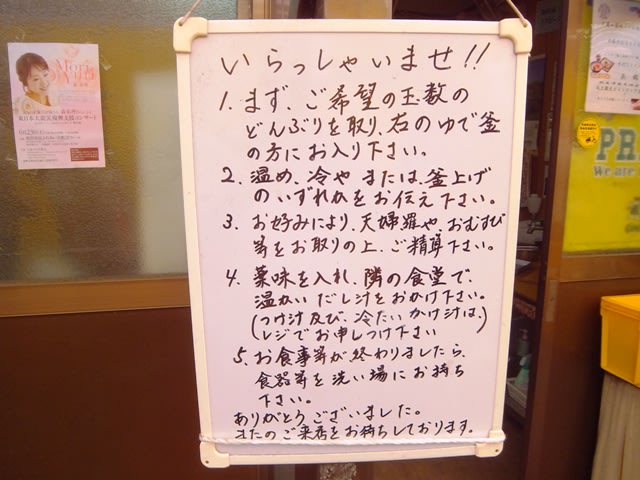 いらっしゃいませ!!
1. まず、ご希望の玉数の
どんぶりを取り、右のゆで釜
の方にお入り下さい。
2. 温め、冷や または、釜上げ
のいずれかをお伝え下さい。
3. お好みにより、天婦羅や、おむすび
等をお取りの上、ご精算下さい。
4. 薬味を入れ、隣の食堂で、
温かいだし汁をおかけ下さい。
(つけ汁及び、冷たいかけ汁は、)
レジでお申しつけ下さい
5. お食事等が終わりましたら、
食器等を洗い場にお持ち
下さい。
ありがとうございました。
またのご来店をお待ちしております。
東日本大震災復興支援コンサート
PR
We are